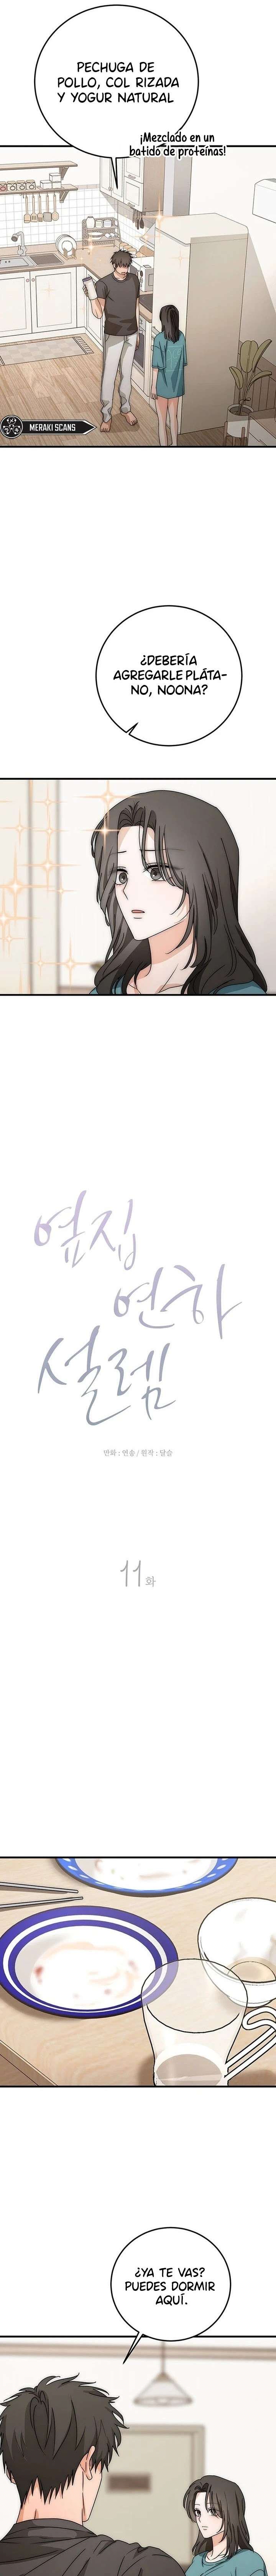 PECHUGA DE
POLLO, COL RIZADA
Y YOGUR NATURAL
¡Mezclado en un
batido de proteínas!
MERAKI SCANS
¿DEBERÍA
AGREGARLE PLÁTA-
NO, NOONA?
옆집
연하
설렘
만화 : 연솔 / 원작 : 달슬
11화
¿YA TE VAS?
PUEDES DORMIR
AQUÍ.